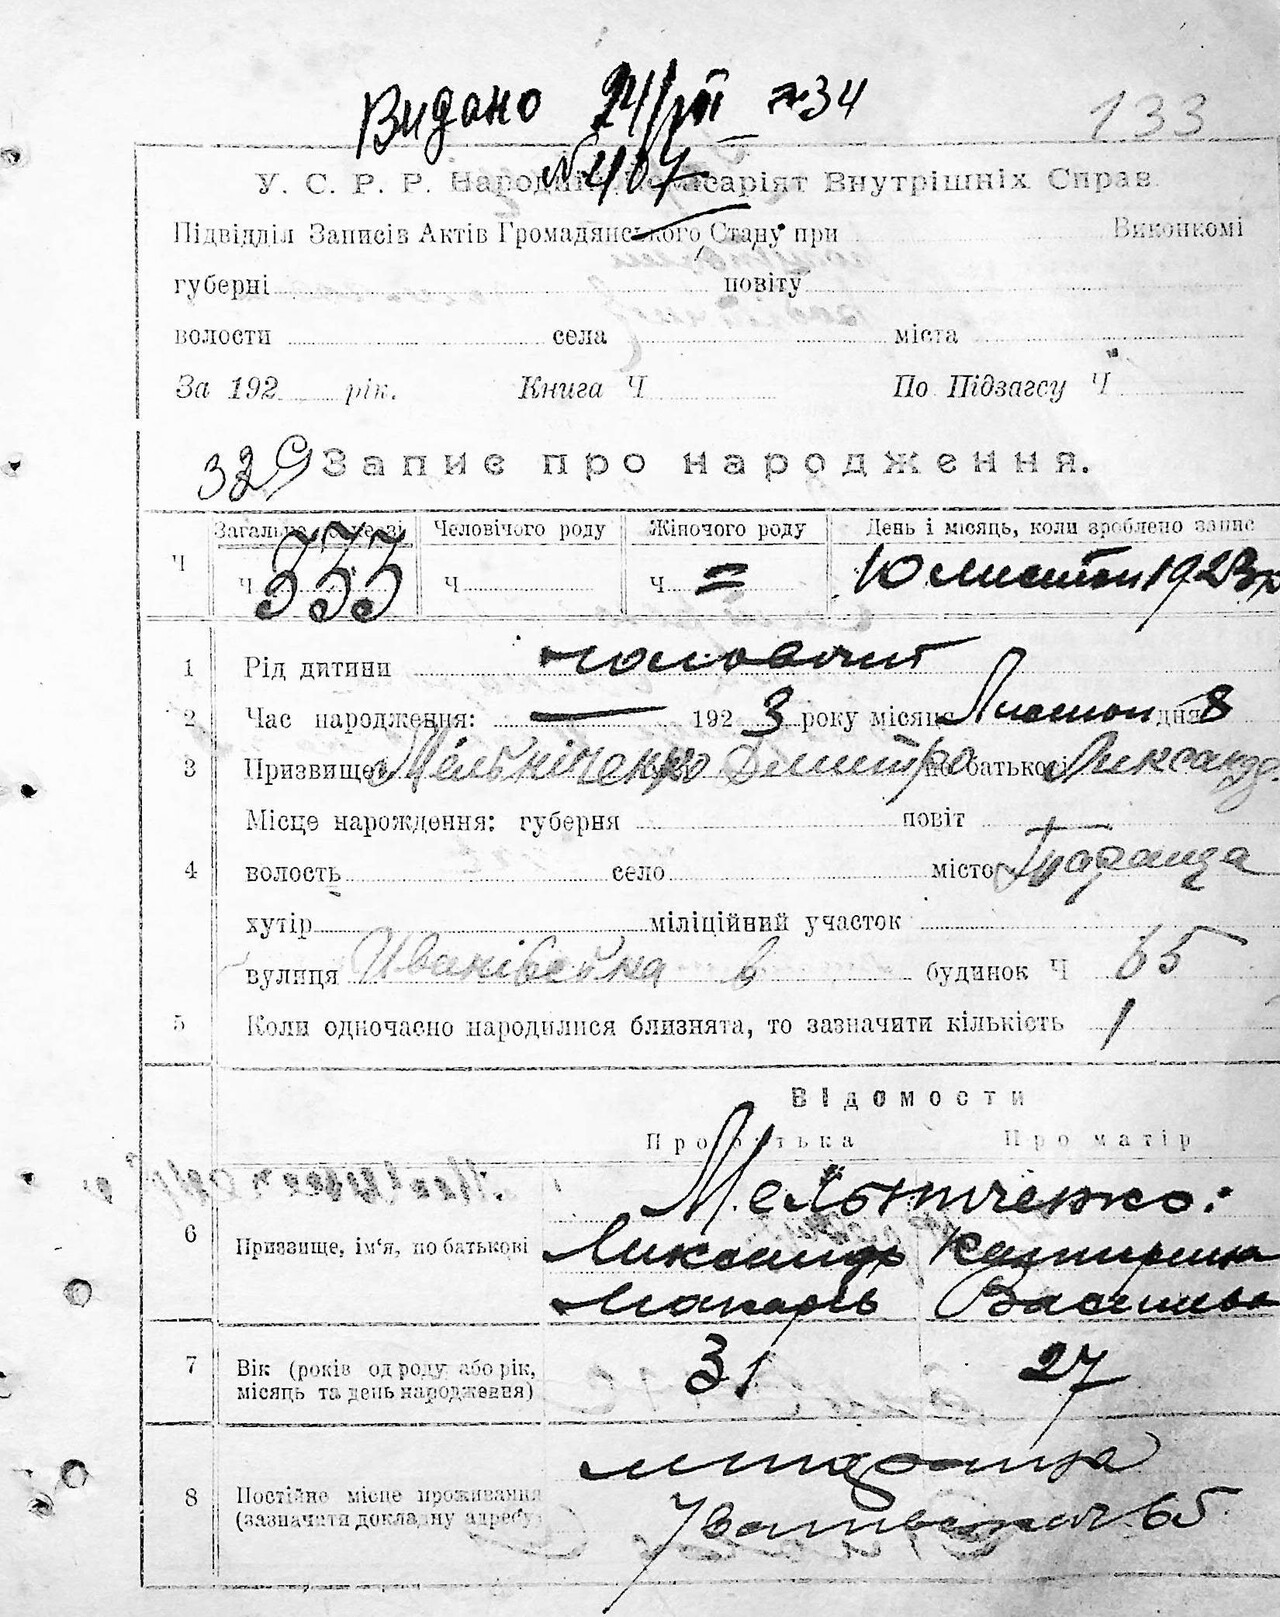 Видано 24/VII 34
133
№ 407
У. С. Р. Р. Народній Комісаріят Внутрішніх Справ
Підвідділ Записів Актів Громадянського Стану при Виконкомі
губерні повіту
волости села міста
За 192 рік. Книга Ч По Підзагсу Ч
329 Запис про народження.
Ч Загальне Человічого роду Жіночого роду День і місяць, коли зроблено запис
Ч 333 Ч Ч = 10 листоп 1923 р
1 Рід дитини чоловічит
2 Час народження: — 192 3 року місяця Листоп дня 8
3 Призвище Мельніченко Дмитро по батькові Лександр
Місце нарождення: губерня повіт
4 волость село місто
хутір міліційний участок
вулиця будинок Ч 65
5 Коли одночасно народилися близнята, то зазначити кількість 1
Відомости
Про батька Про матір
Мельниченко:
6 Призвище, ім'я, по батькові Лександр Катерина
Макарів Василівна
7 Вік (років од роду або рік, 31 27
місяць та день народження)
8 Постійне місце проживання
(зазначити докладну адресу) 65